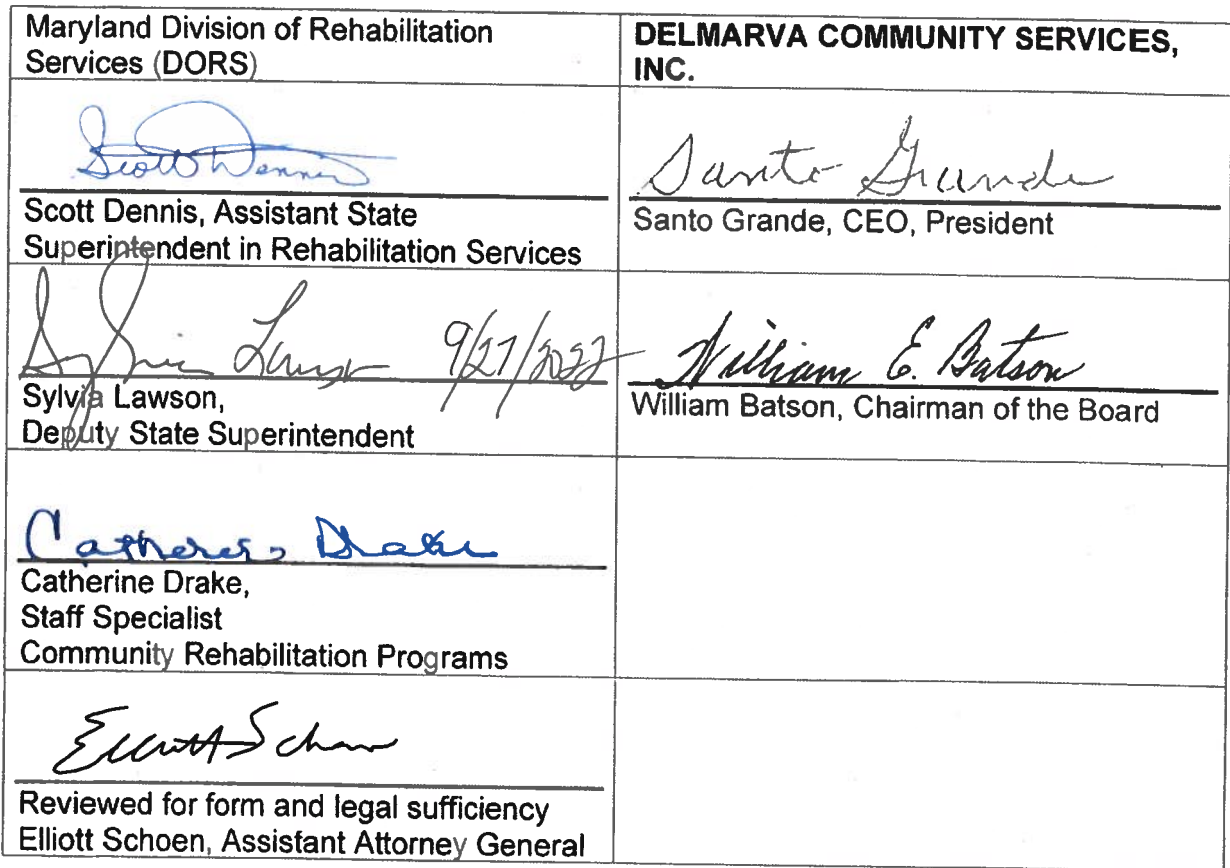 Maryland Division of Rehabilitation
Services (DORS)
DELMARVA COMMUNITY SERVICES,
INC.
Scott Dennis
Scott Dennis, Assistant State
Superintendent in Rehabilitation Services
Santo Grande
Santo Grande, CEO, President
Sylvia Lawson 9/27/2022
Sylvia Lawson,
Deputy State Superintendent
William E. Batson
William Batson, Chairman of the Board
Catherine Drake
Catherine Drake,
Staff Specialist
Community Rehabilitation Programs
Elliott Schoen
Reviewed for form and legal sufficiency
Elliott Schoen, Assistant Attorney General